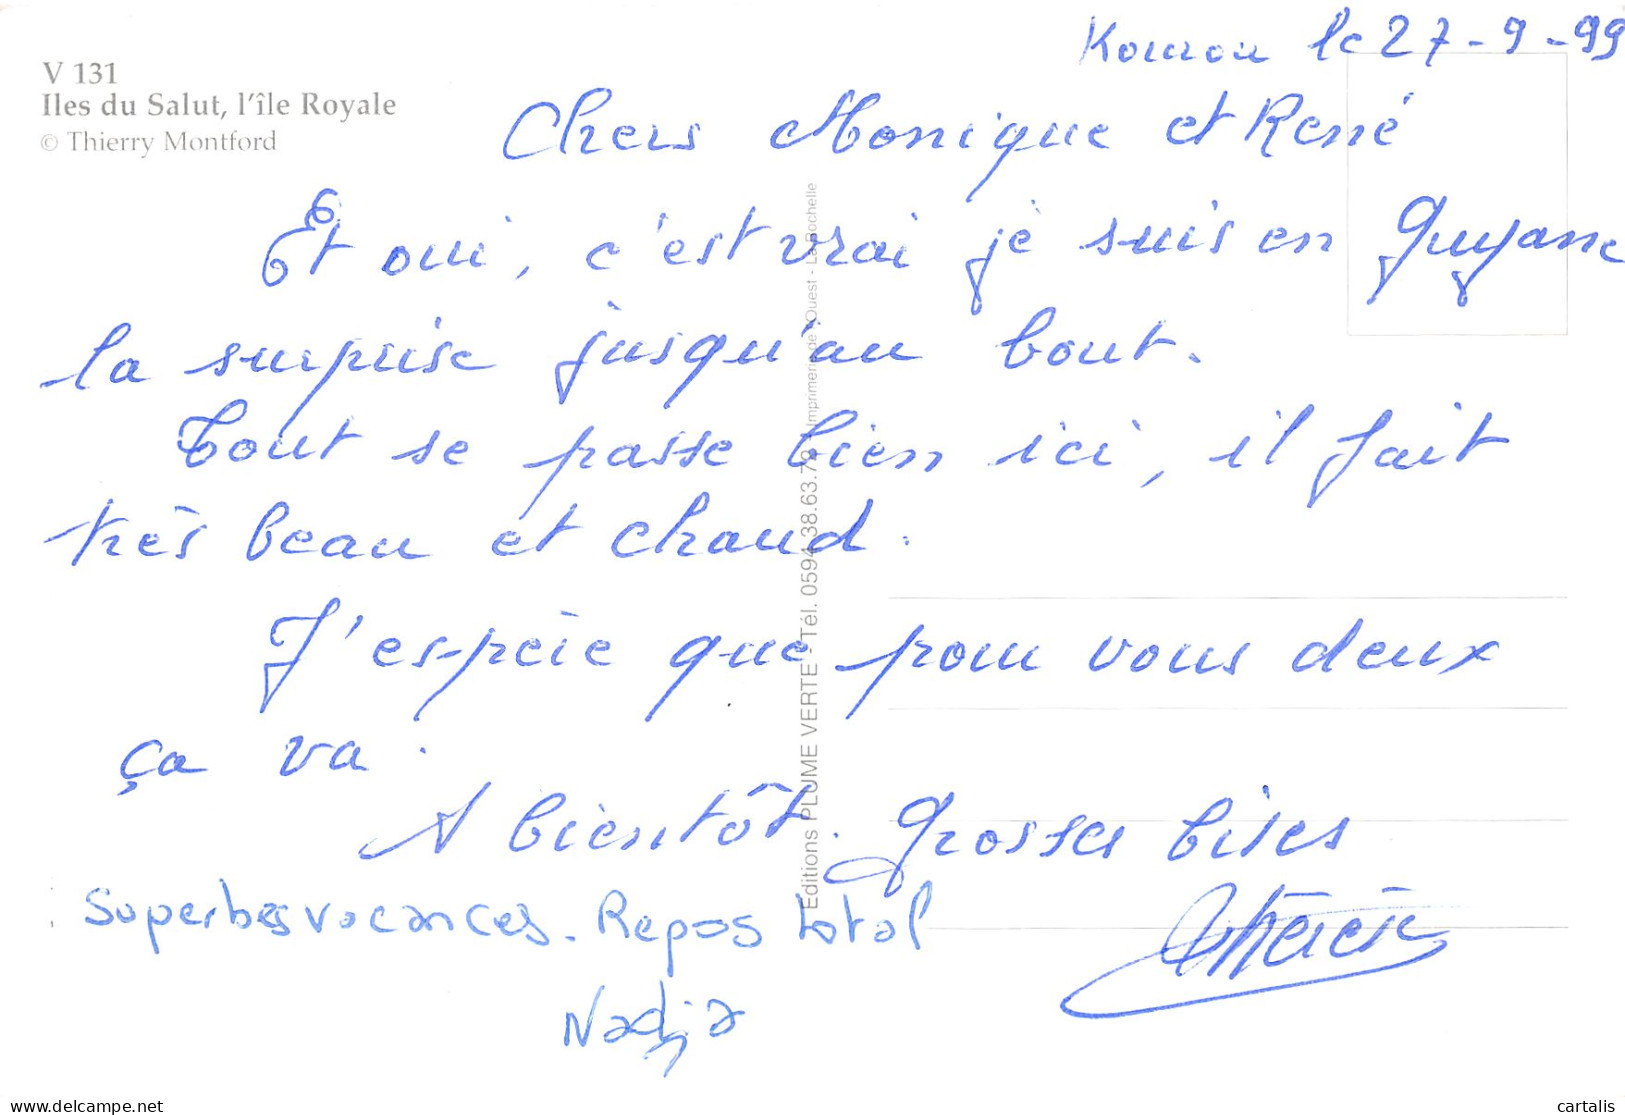 Kourou le 27-9-99
V 131
Iles du Salut, l'île Royale
© Thierry Montford
Chers Monique et René
Et oui, c'est vrai je suis en Guyane
la surprise jusqu'au bout.
Tout se passe bien ici, il fait
très beau et chaud.
J'espère que pour vous deux
ça va.
A bientôt. Grosses bises
Superbes vacances. Repos total
Nadja
Editions PLUME VERTE - Tél. 0594 38.63.79 Imprimerie de l'Ouest - La Rochelle
www.delcampe.net
cartalis